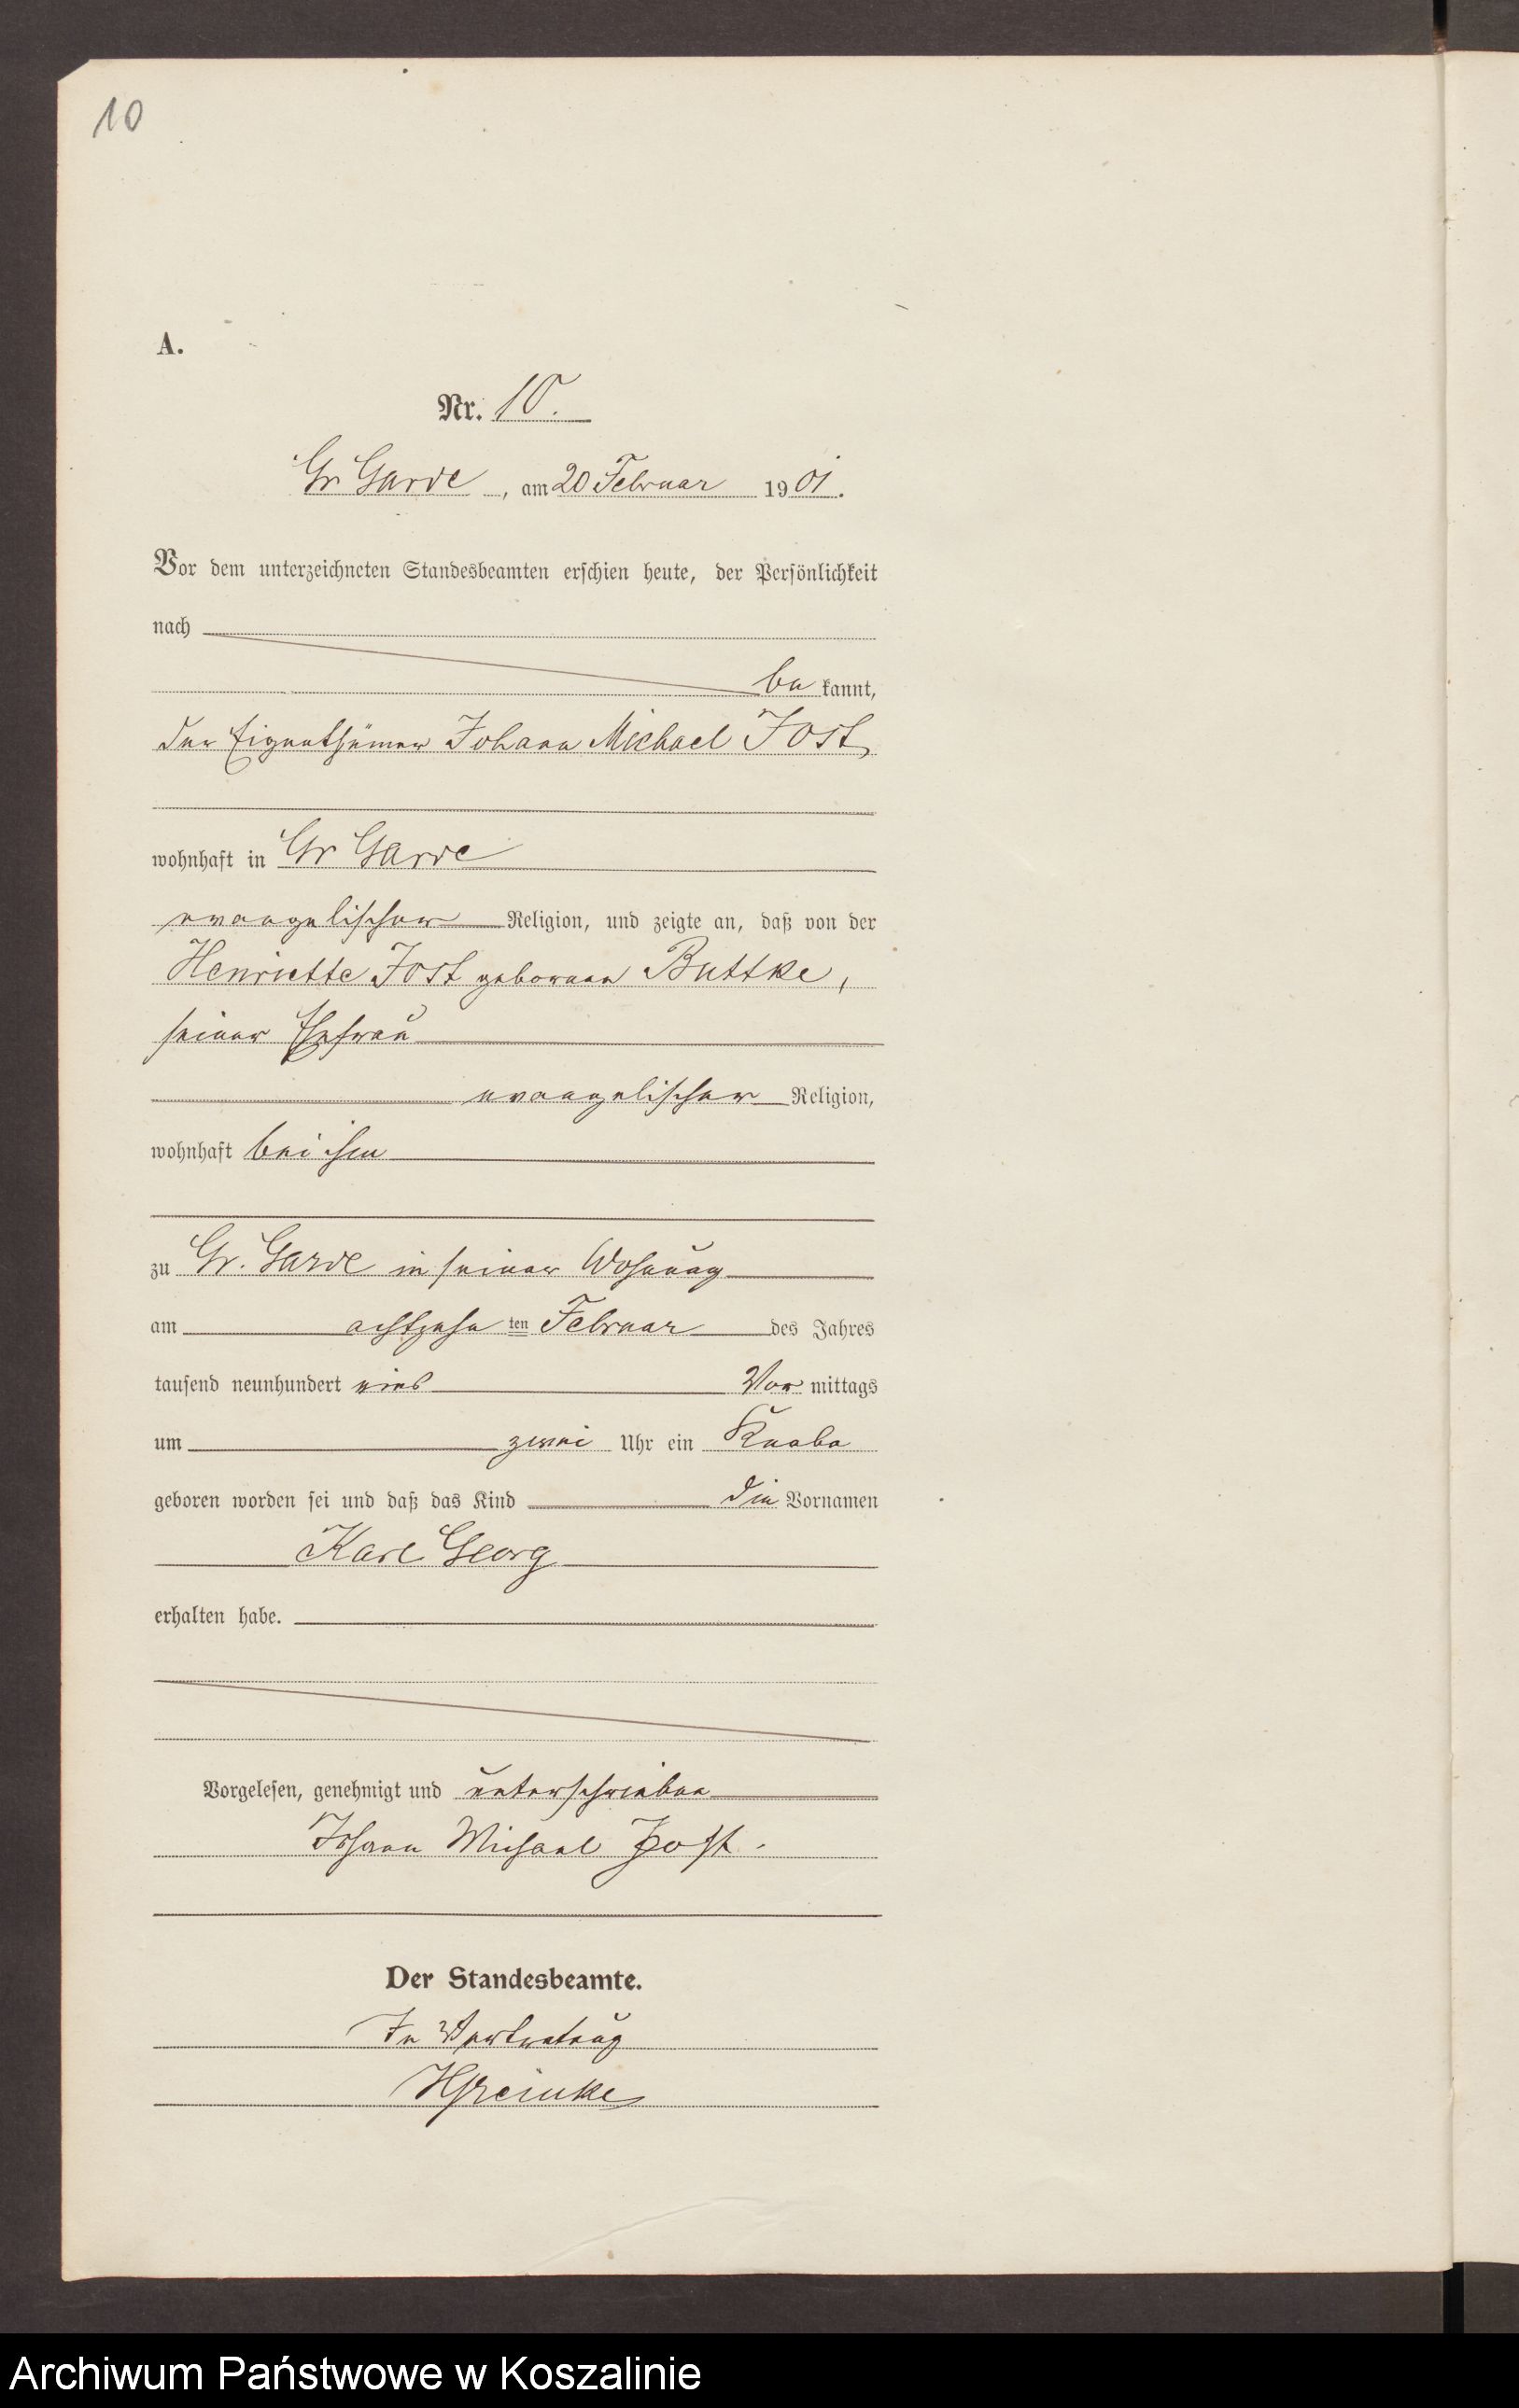 10
A.
Nr. 10.
Gr Garde, am 20 Februar 1901.
Vor dem unterzeichneten Standesbeamten erschien heute, der Persönlichkeit
nach
be kannt,
der Eigenthümer Johann Michael Jost,
wohnhaft in Gr Garde
evangelischer Religion, und zeigte an, daß von der
Henriette Jost geborenen Buttke,
seiner Ehefrau
evangelischer Religion,
wohnhaft bei ihm
zu Gr. Garde in seiner Wohnung
am achtzehn ten Februar des Jahres
tausend neunhundert eins Vor mittags
um zwei Uhr ein Knabe
geboren worden sei und daß das Kind die Vornamen
Karl Georg
erhalten habe.
Vorgelesen, genehmigt und unterschrieben
Johann Michael Jost.
Der Standesbeamte.
In Vertretung
Archiwum Państwowe w Koszalinie